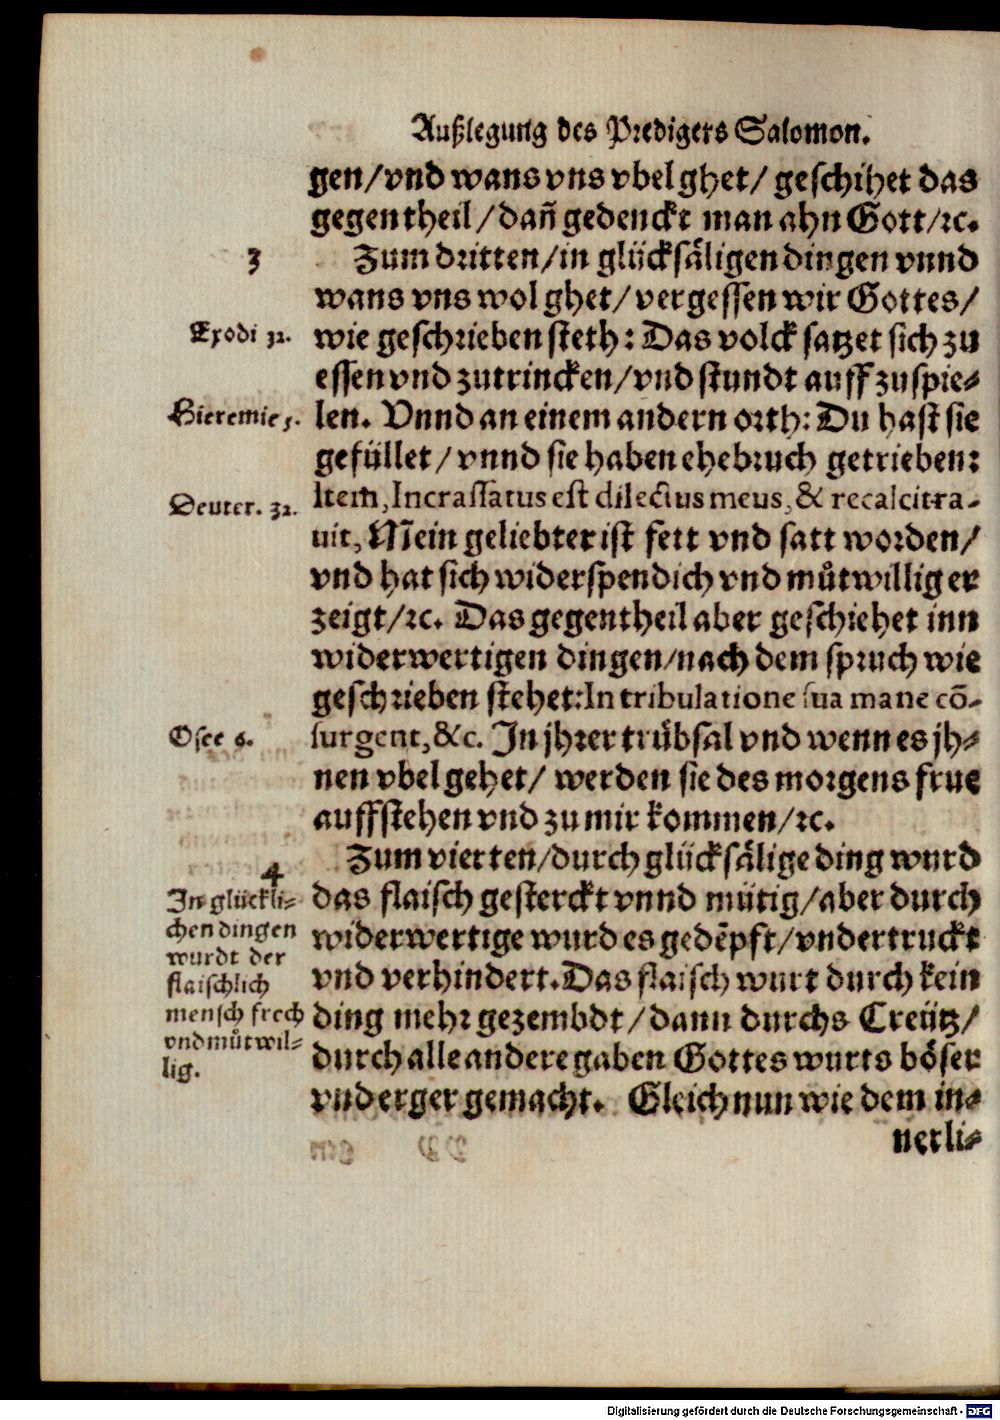 Außlegung des Predigers Salomon.
gen/vnd wans vns vbel ghet/ geschihet das
gegentheil/dañ gedenckt man ahn Gott/ꝛc.
3
Zum dritten/in glücksäligen dingen vnnd
wans vns wol ghet/vergessen wir Gottes/
Exodi 32.
wie geschrieben steth: Das volck satzet sich zu
essen vnd zutrincken/vnd stundt auff zuspie-
Hieremie 5.
len. Vnnd an einem andern orth: Du hast sie
gefüllet/vnnd sie haben ehebruch getrieben:
Deuter. 32.
Item, Incrassatus est dilectus meus, & recalcitra-
uit, Mein geliebter ist fett vnd satt worden/
vnd hat sich widerspendich vnd můtwillig er
zeigt/ꝛc. Das gegentheil aber geschiehet inn
widerwertigen dingen/nach dem spruch wie
geschrieben stehet: In tribulatione sua mane cõ-
Osee 6.
surgent, &c. In jhrer trůbsal vnd wenn es jh-
nen vbel gehet/ werden sie des morgens frue
auffstehen vnd zu mir kommen/ꝛc.
4
Zum vierten/durch glücksälige ding wurd
In glückli-
chen dingen
wurdt der
flaischlich
mensch frech
vnd můtwil-
lig.
das flaisch gesterckt vnnd mütig/aber durch
widerwertige wurd es gedẽpft/vndertruckt
vnd verhindert. Das flaisch wurt durch kein
ding mehr gezembdt/dann durchs Creütz/
durch alle andere gaben Gottes wurts böser
vnd erger gemacht. Gleich nun wie dem in-
nerli-
Digitalisierung gefördert durch die Deutsche Forschungsgemeinschaft - DFG